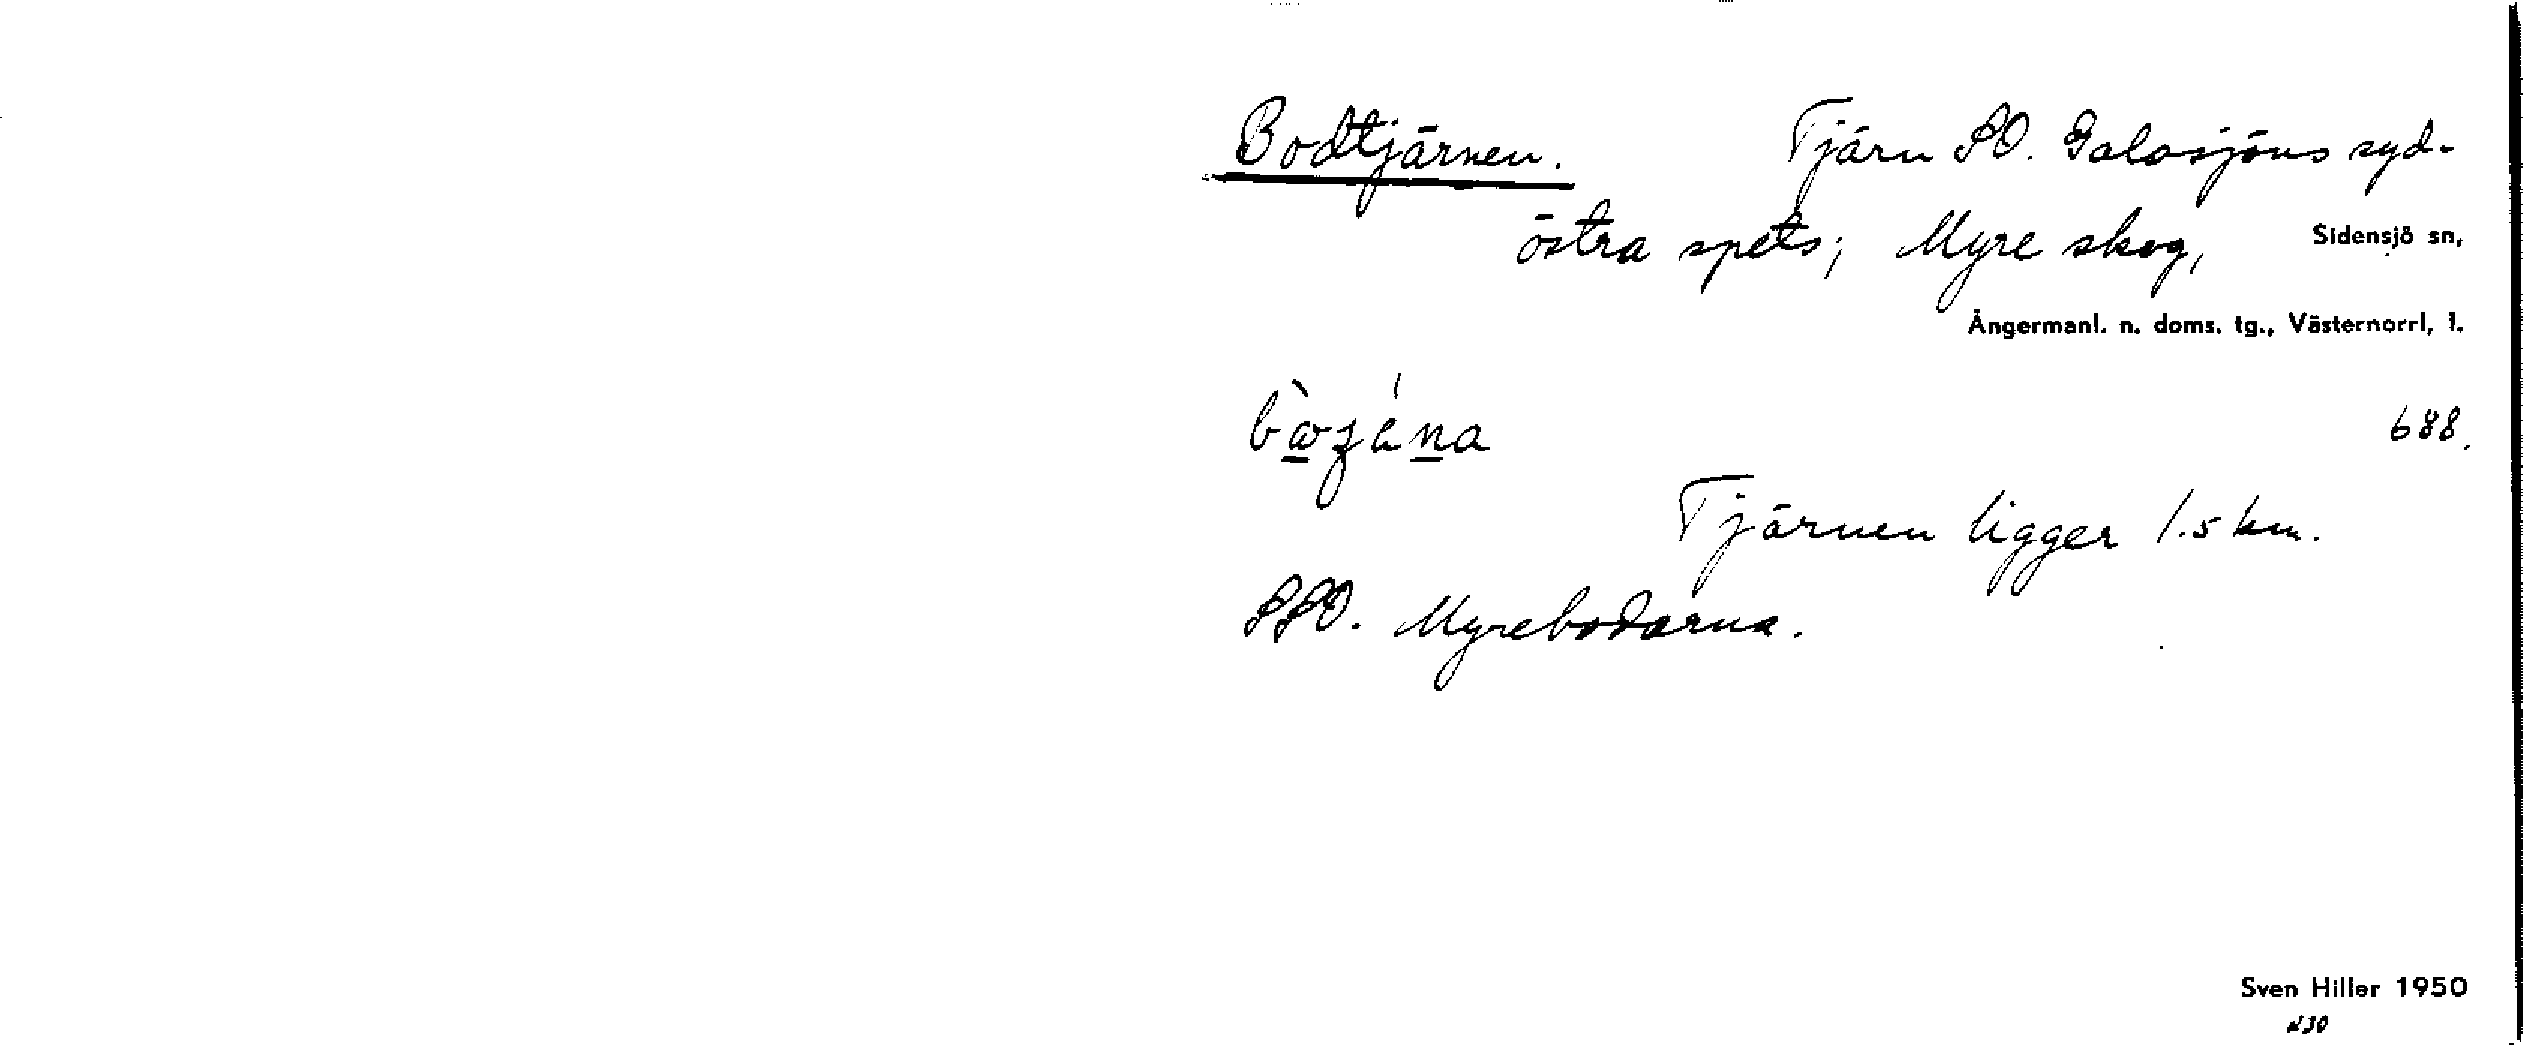 Bodtjärnen. Tjärn SO. Galasjöns syd-
östra spets; Myre skog, Sidensjö sn,
Ångermanl. n. doms. tg., Västernorrl, l.
688.
Tjärnen ligger 1.5 km.
SSO. Myrebodarna.
Sven Hiller 1950